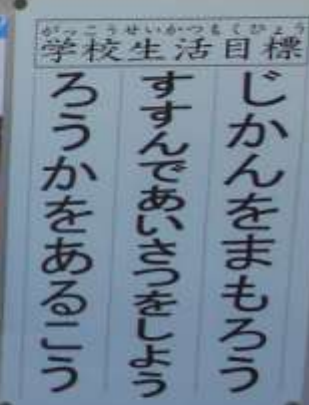 がっこうせいかつもくひょう
学校生活目標
じかんをまもろう
すすんであいさつをしよう
ろうかをあるこう